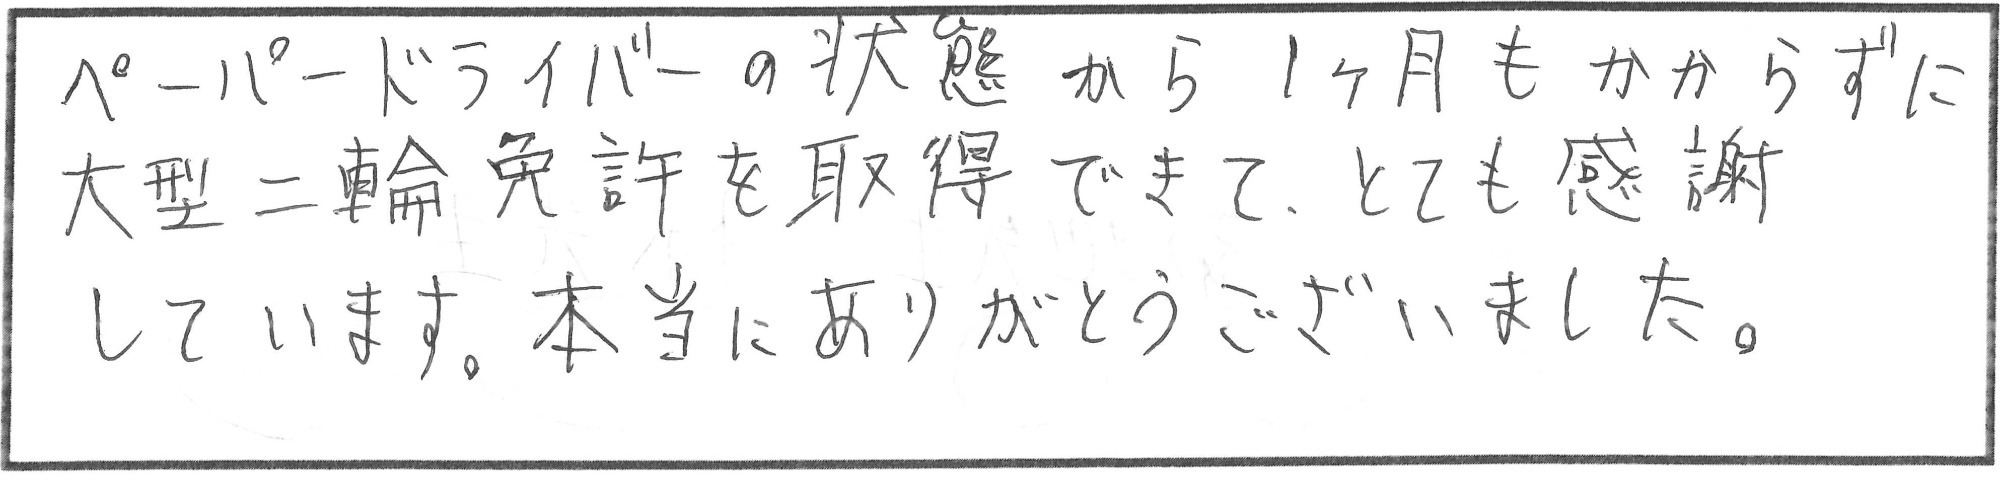 ペーパードライバーの状態から1ヶ月もかからずに
大型二輪免許を取得できて、とても感謝
しています。本当にありがとうございました。